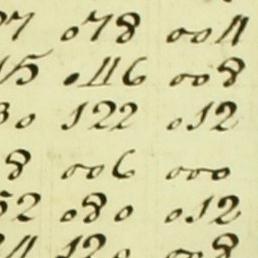 27 078 0011
15 .116 008
30 122 012
8 006 000
52 080 012
24 120 008